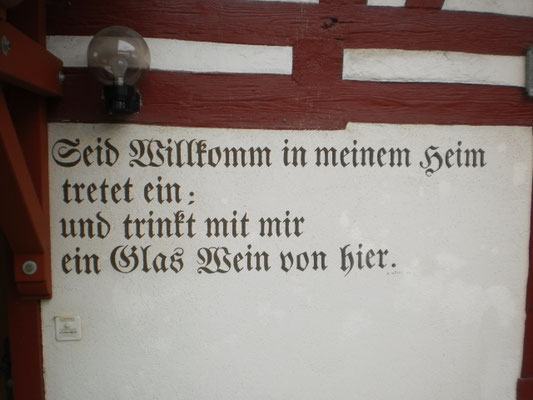 Seid Willkomm in meinem Heim
tretet ein;
und trinkt mit mir
ein Glas Wein von hier.